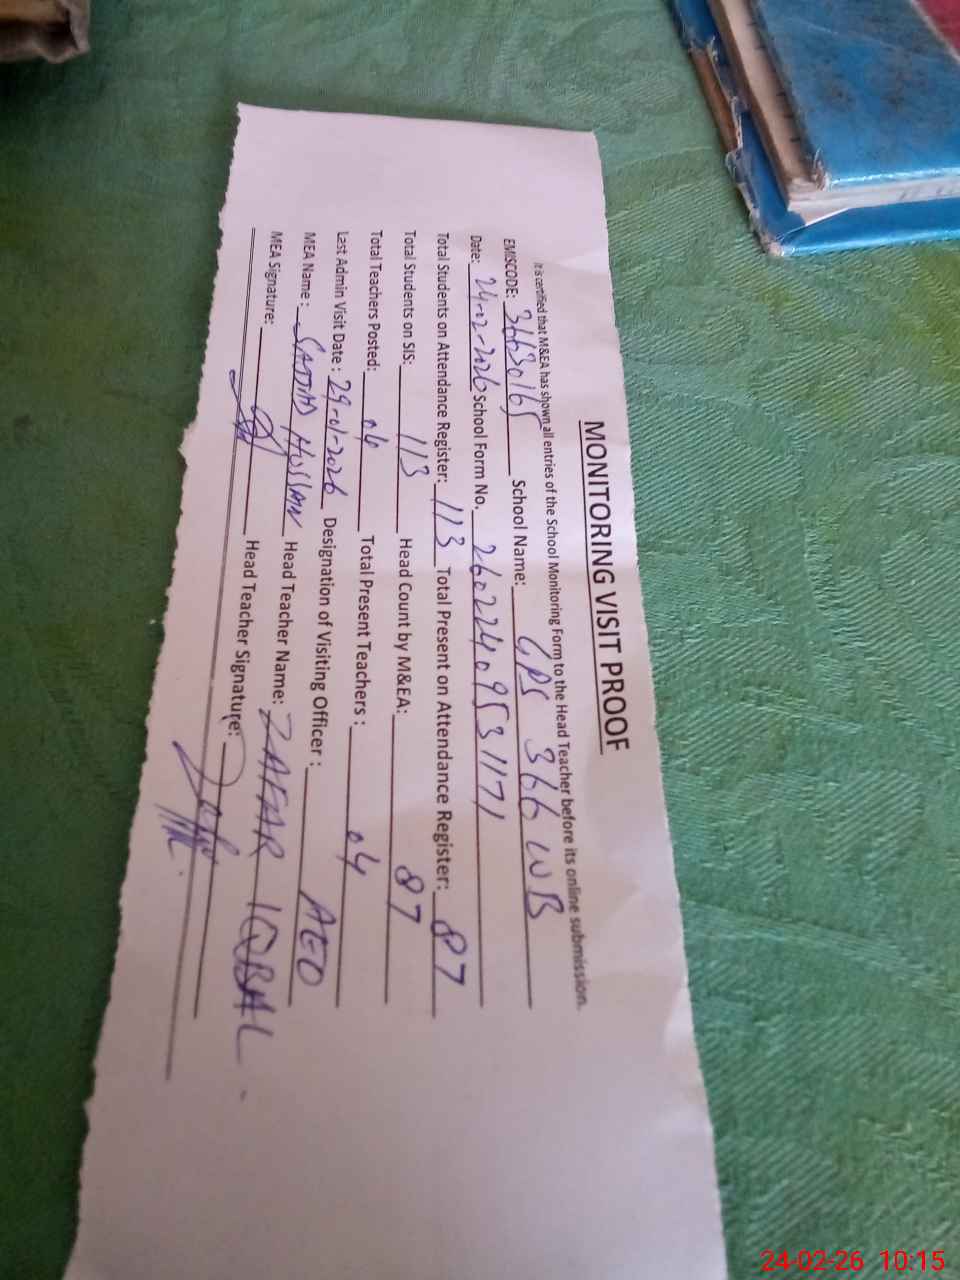 MONITORING VISIT PROOF
It is certified that M&EA has shown all entries of the School Monitoring Form to the Head Teacher before its online submission.
EMISCODE: 36630165 School Name: GPS 366 WB
Date: 24-02-2026 School Form No. 2602240953 1171
Total Students on Attendance Register: 113 Total Present on Attendance Register: 87
Total Students on SIS: 113 Head Count by M&EA: 87
Total Teachers Posted: 06 Total Present Teachers : 04
Last Admin Visit Date : 29-01-2026 Designation of Visiting Officer : AEO
MEA Name : HUSSAN Head Teacher Name: ZAFAR IQBAL
MEA Signature: Head Teacher Signature:
24-02-26 10:15